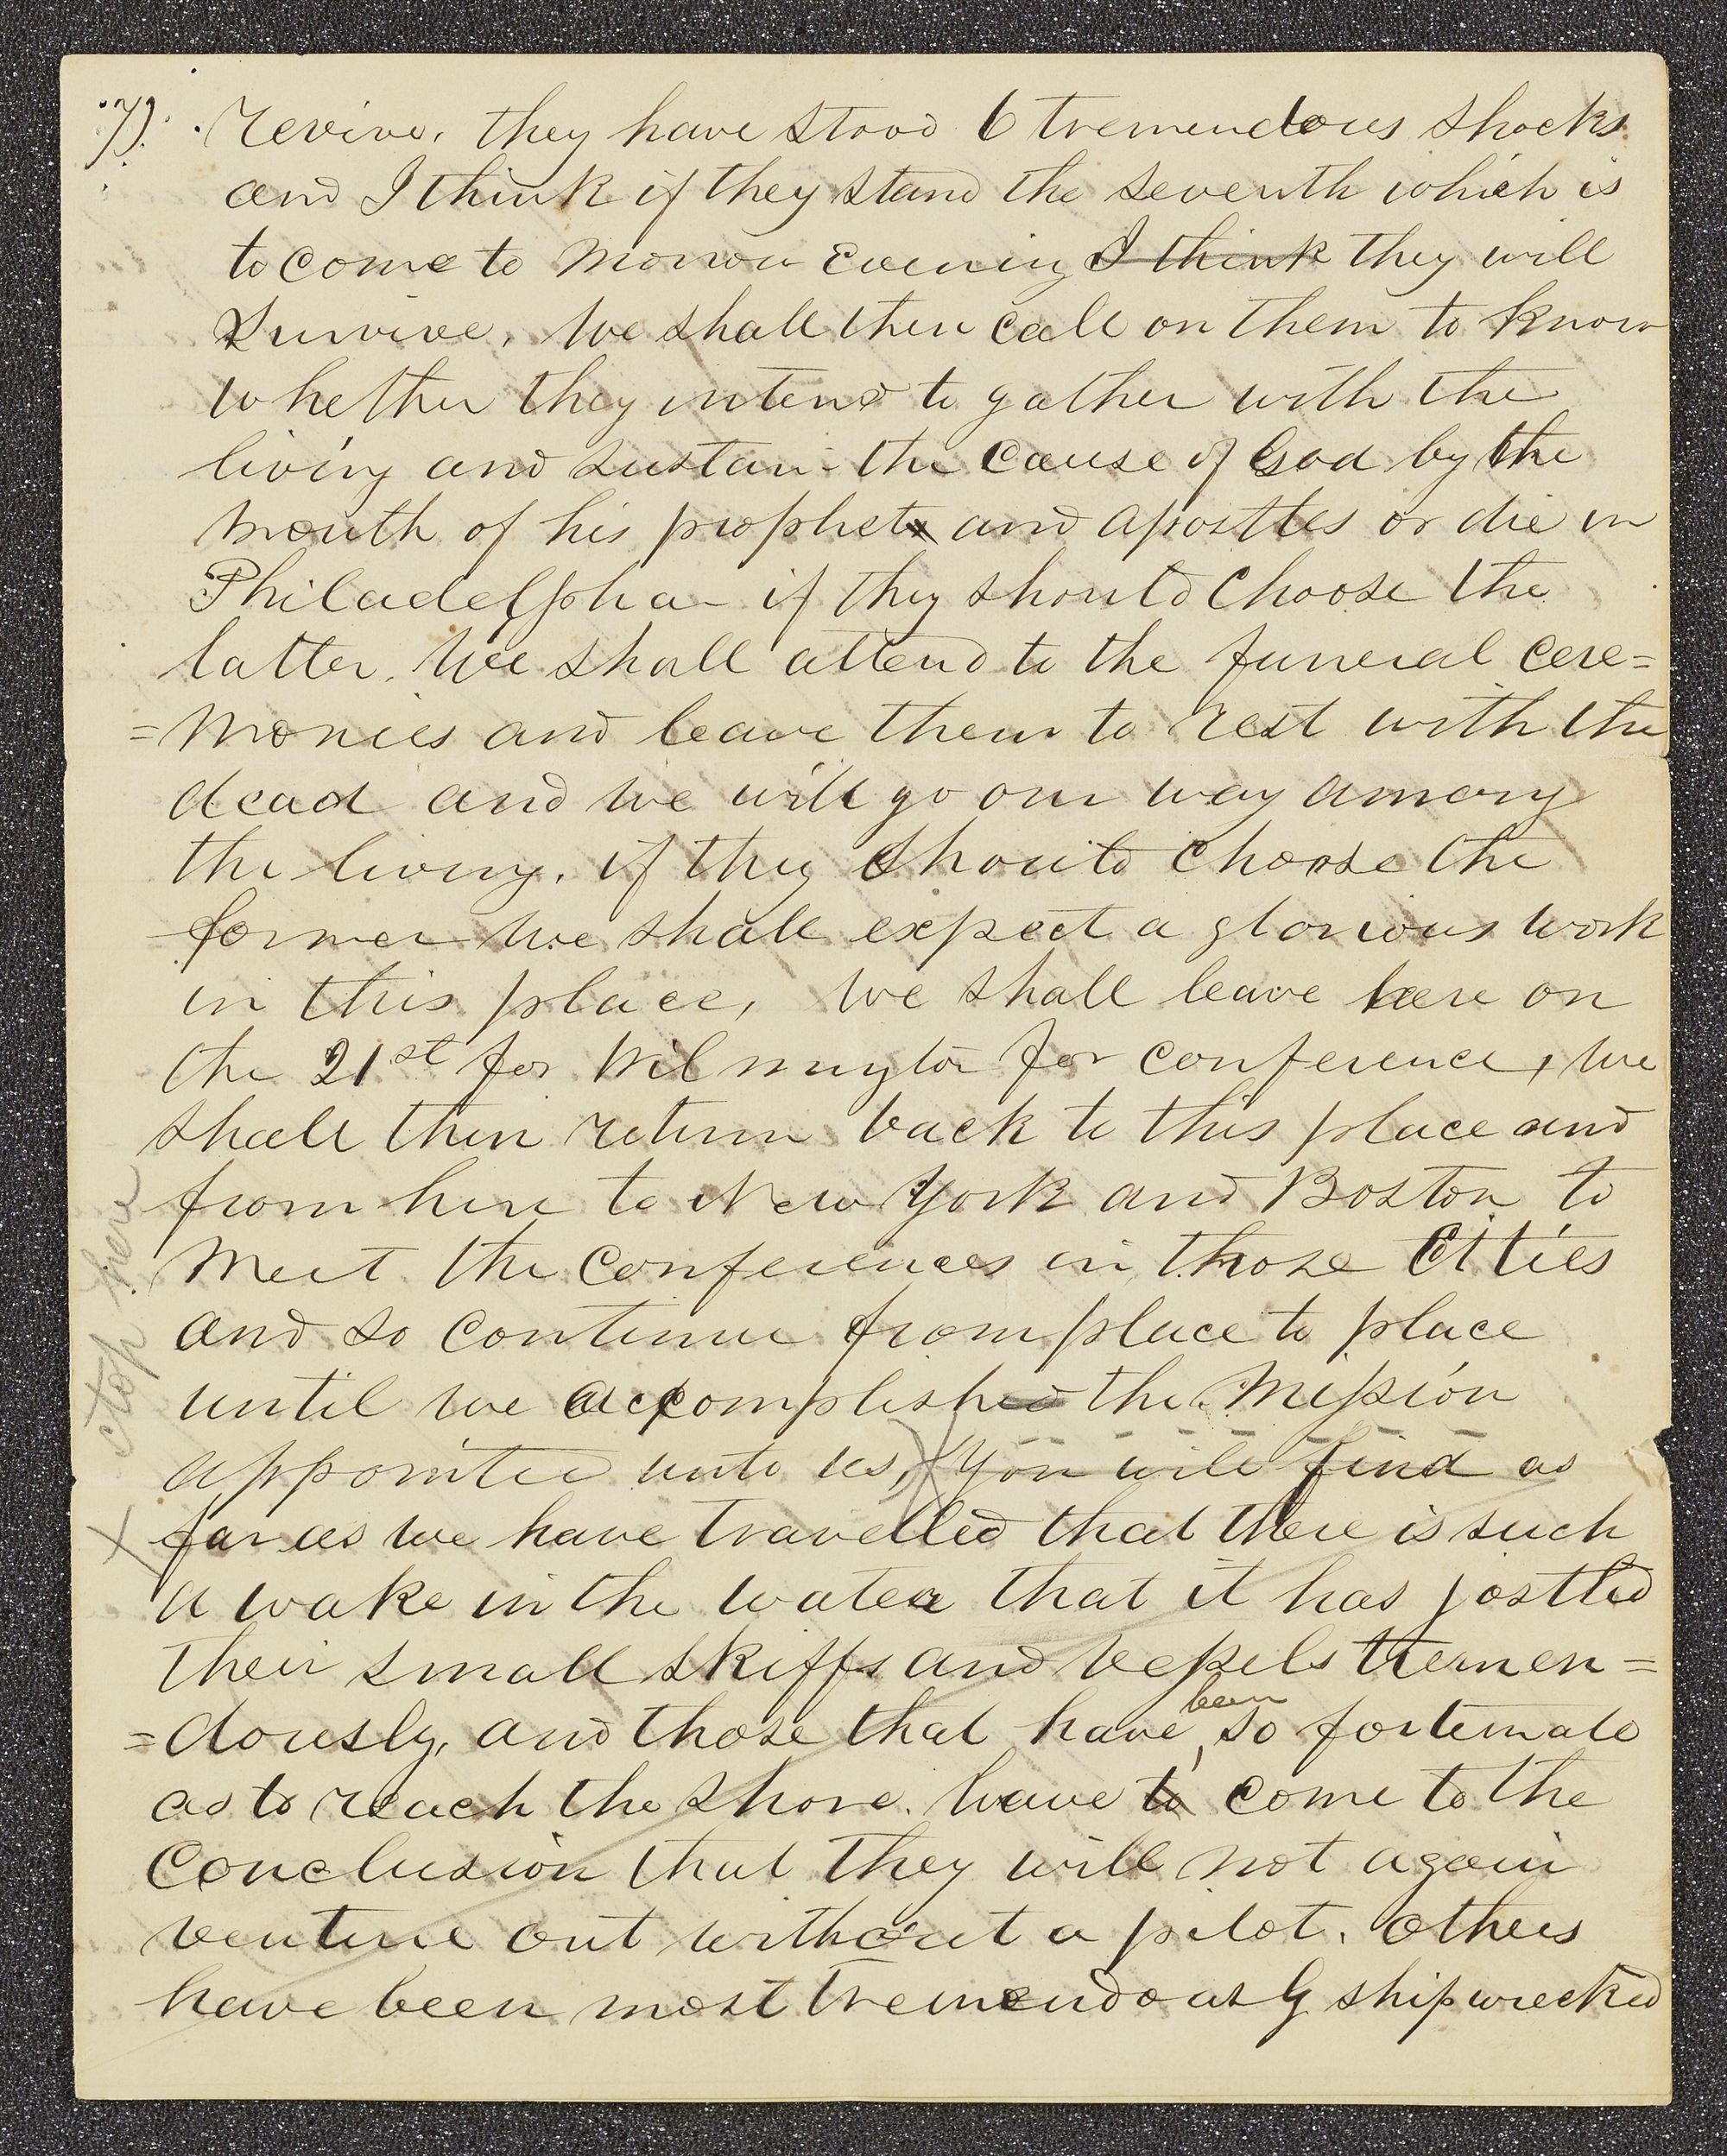 7). revive, they have stood 6 tremendous shocks
and I think if they stand the seventh which is
to come to morrow evening I think they will
survive, We shall then call on them to know
whether they intend to gather with the
living and sustain the cause of God by the
mouth of his prophets and apostles or die in
Philadelpha if they should choose the
latter, We shall attend to the funeral cere=
=monies and leave them to rest with the
dead and we will go our way among
the living, if they should choose the
former we shall expect a glorious work
in this place, We shall leave here on
the 21st for Wilmington for conference, we
shall then return back to this place and
from here to New York and Boston to
meet the conferences in those Citties
and so continue from place to place
until we accomplished the Mission
appointed unto us, you will find as
far as we have travelled that there is such
a wake in the water that it has jostled
their small skiffs and vessels tremen=
=dously, and those that have been so fortunate
as to reach the shore, have to come to the
conclusion that they will not again
venture out without a pilot, others
have been most tremendously shipwrecked
stop here
X